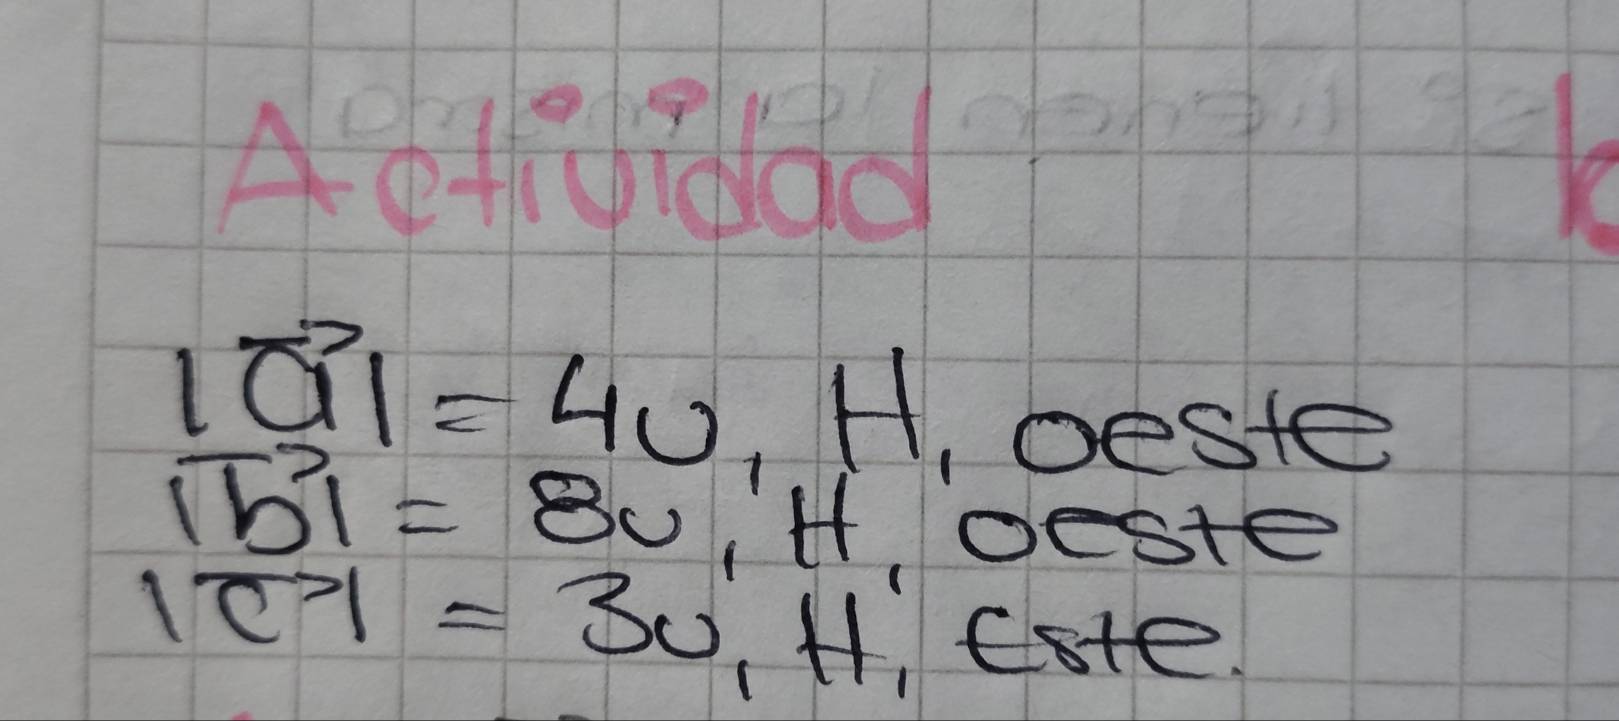 Actividad
|a⃗| = 4u, H, oeste
|b⃗| = 8u, H, oeste
|c⃗| = 3u, H, Este.